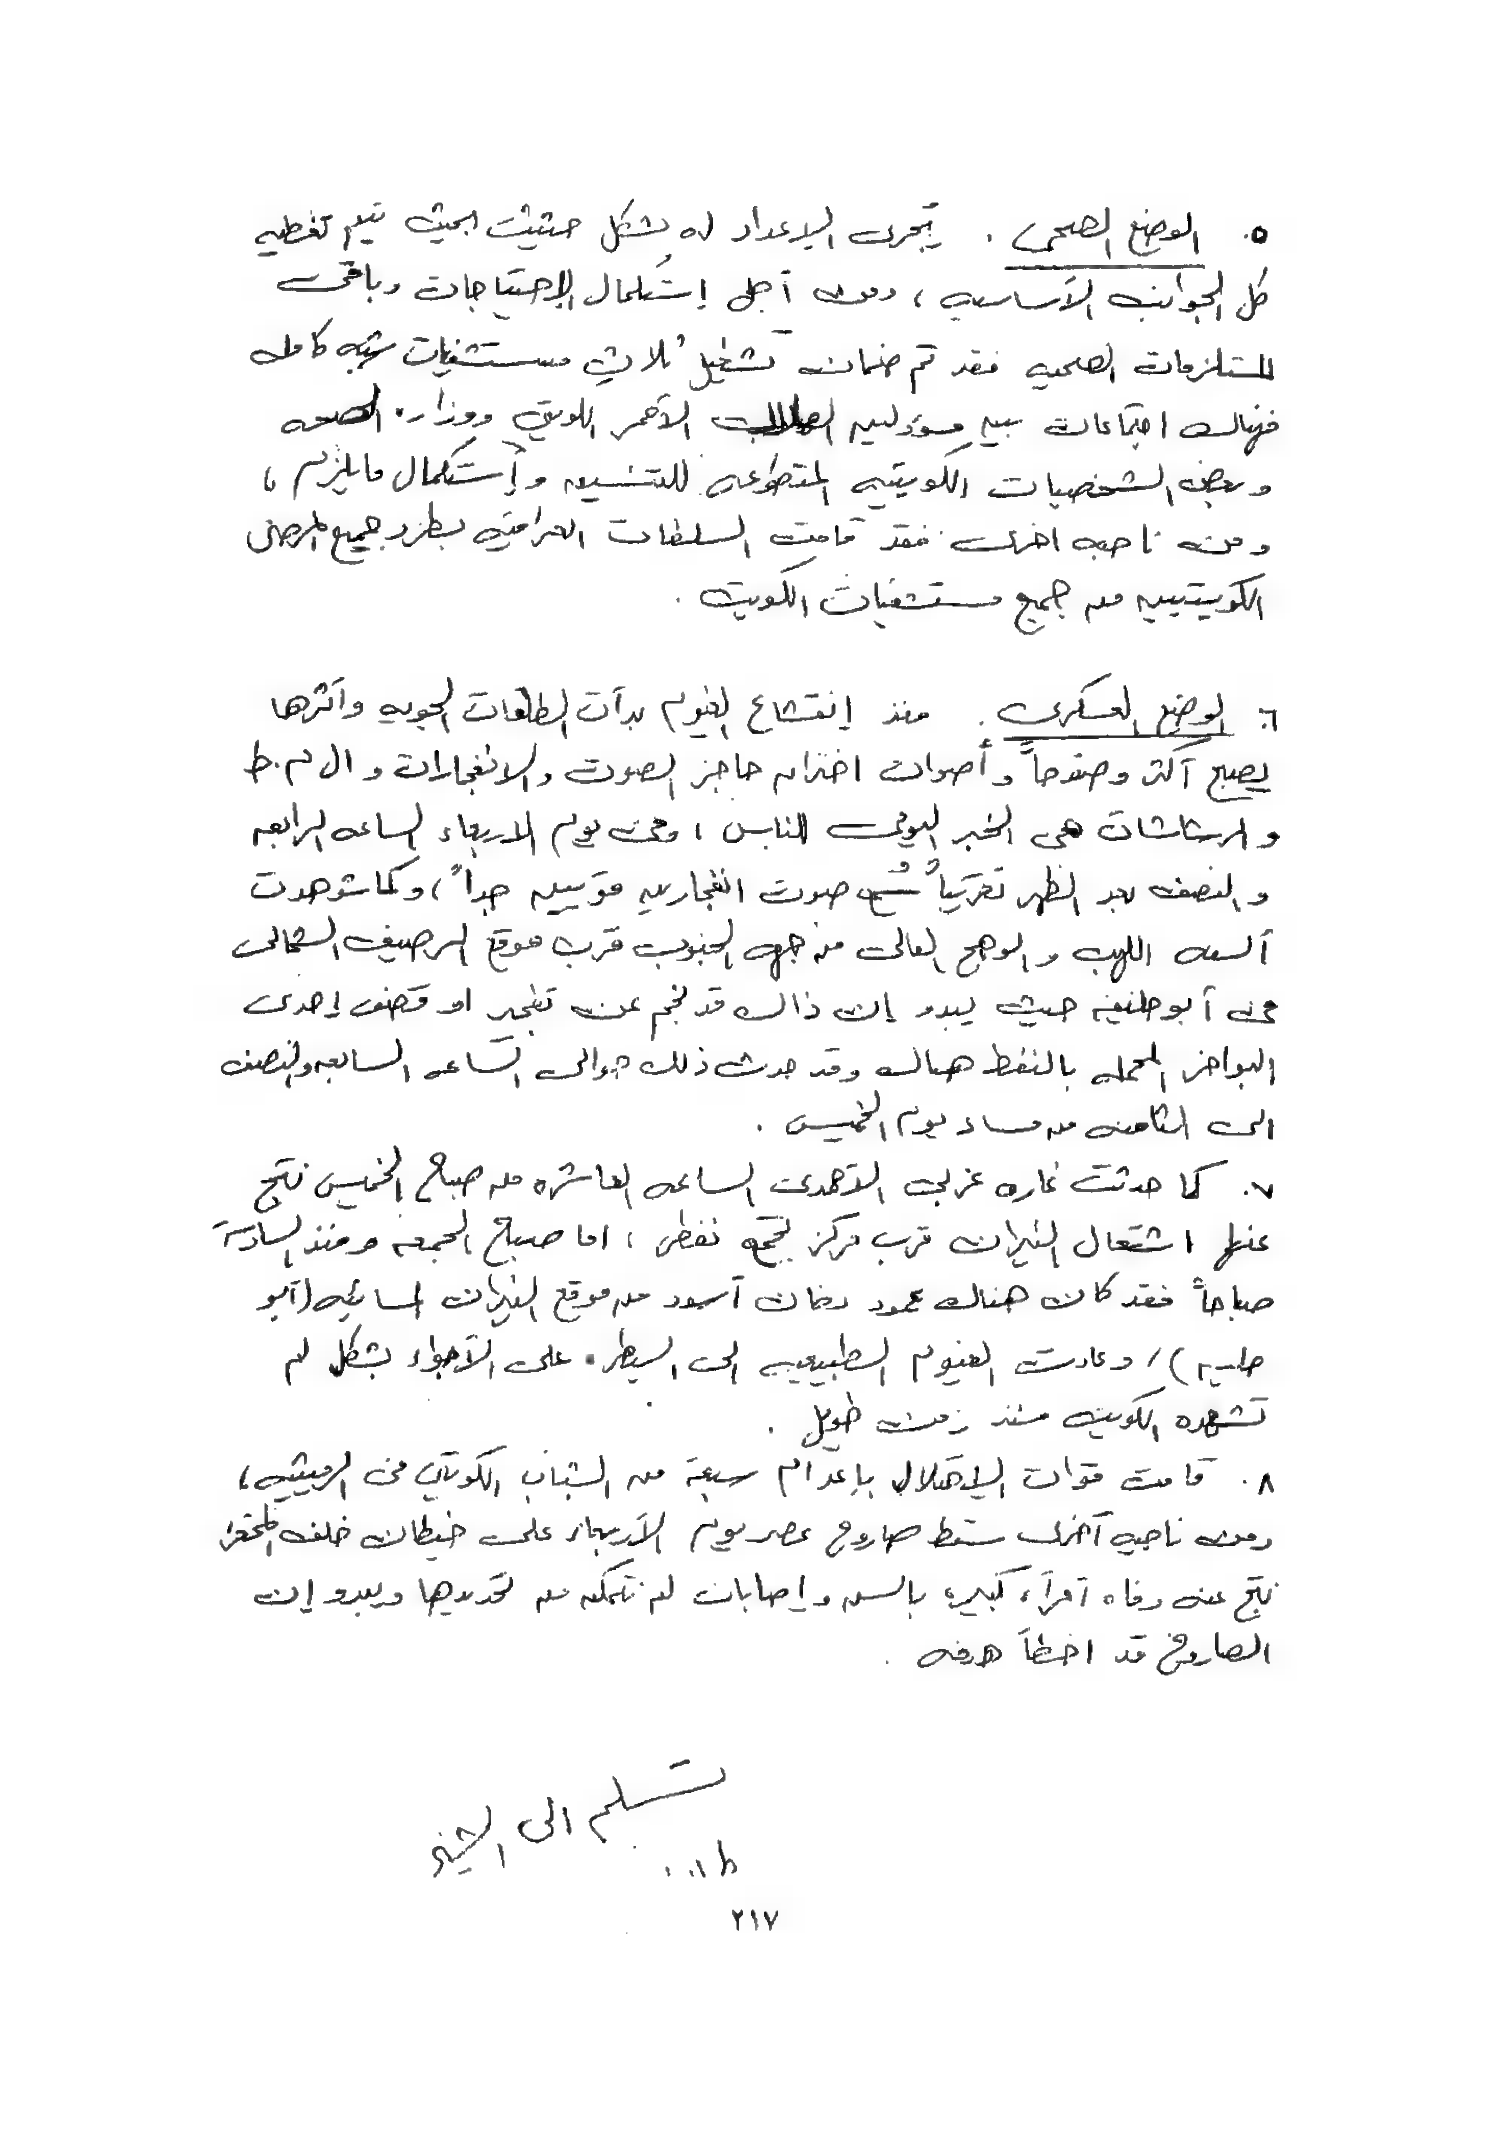 ٥. الوضع الصحي . يجرى الإعداد له بشكل حثيث بحيث يتم تغطيه
كل الجوانب الأساسيه ، ومن أجل إستكمال الإحتياجات وباقى
المستلزمات الصحيه فقد تم ضمان تشغيل ثلاث مستشفيات شبه كامله
فهناك اجتماعات بين مسؤولين الهلال الأحمر الكويتي ووزارة الصحه
وبعض الشخصيات الكويتيه المتطوعه للتنسيق وإستكمال مايلزم ،
ومن ناحيه اخرى فقد قامت السلطات العراقيه بطرد جميع المرضى
الكويتيين من جميع مستشفيات الكويت .
٦. الوضع العسكرى . منذ إنقشاع الغيوم بدأت الطلعات الجويه وأثرها
يصبح أكثر وضوحاً وأصوات اختراق حاجز الصوت والانفجارات و ال م.ط
والرشاشات هى الخبر اليومى للناس ، وفى يوم الاربعاء الساعه الرابعه
والنصف بعد الظهر تقريباً سُمع صوت انفجارين قويين جداً ، وكما شوهدت
ألسنه اللهب والوهج العالى من جهه الجنوب قرب موقع الرصيف الشمالى
فى أبوحليفه حيث يبدو إن ذالك قد نجم عن تفجير او قصف إحدى
البواخر المحمله بالنفط هناك وقد حدث ذلك حوالى الساعه السابعه والنصف
الى الثامنه من مساء يوم الخميس .
٧. كما حدثت غاره غربى الأحمدى الساعه العاشره من صباح الخميس نتج
عنها اشتعال النيران قرب مركز تجمع نفطى ، اما صباح الجمعه ومنذ السادسة
صباحاً فقد كان هناك عمود دخان أسود من موقع النيران المسائيه (أبو
حليفه) ، وعادت الغيوم الطبيعيه الى السيطرة على الأجواء بشكل لم
تشهده الكويت منذ زمن طويل .
٨. قامت قوات الإحتلال بإعدام سبعة من الشباب الكويتي فى الرميثيه ،
ومن ناحيه أخرى سقط صاروخ عصر يوم الأربعاء على خيطان خلف المخفر
نتج عنه وفاه امرأة كبيره بالسن وإصابات لم نتمكن من تحديدها ويبدو إن
الصاروخ قد اخطأ هدفه .
تسلم الى الاخ
ط ١٠٠
٢١٧